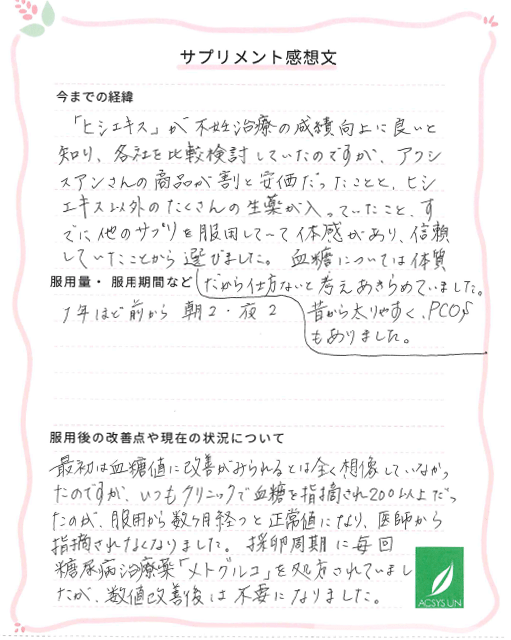 サプリメント感想文
今までの経緯
「ヒシエキス」が不妊治療の成績向上に良いと
知り、各社を比較検討していたのですが、アクシ
スアンさんの商品が割と安価だったことと、ヒシ
エキス以外のたくさんの生薬が入っていたこと、す
でに他のサプリを服用していて体感があり、信頼
していたことから選びました。 血糖については体質
だから仕方ないと考えあきらめていました。
昔から太りやすく、PCOS
もありました。
服用量・服用期間など
1年ほど前から 朝2・夜2
服用後の改善点や現在の状況について
最初は血糖値に改善がみられるとは全く想像していなかっ
たのですが、いつもクリニックで血糖を指摘され200以上だっ
たのが、服用から数ヶ月経つと正常値になり、医師から
指摘されなくなりました。 採卵周期に毎回
糖尿病治療薬「メトグルコ」を処方されていまし
たが、数値改善後は不要になりました。
ACSYSUN